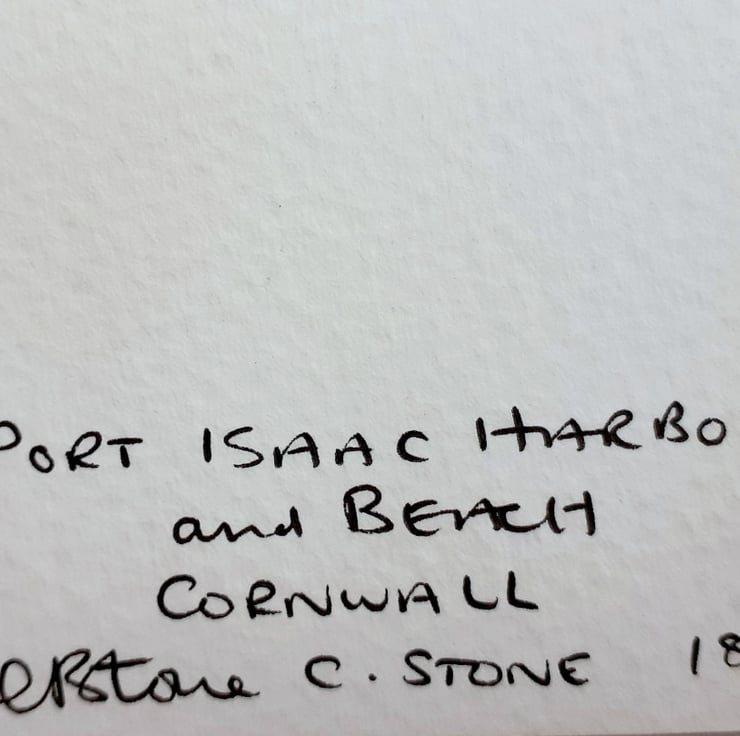 PORT ISAAC HARBO
and BEACH
CORNWALL
C. STONE 18